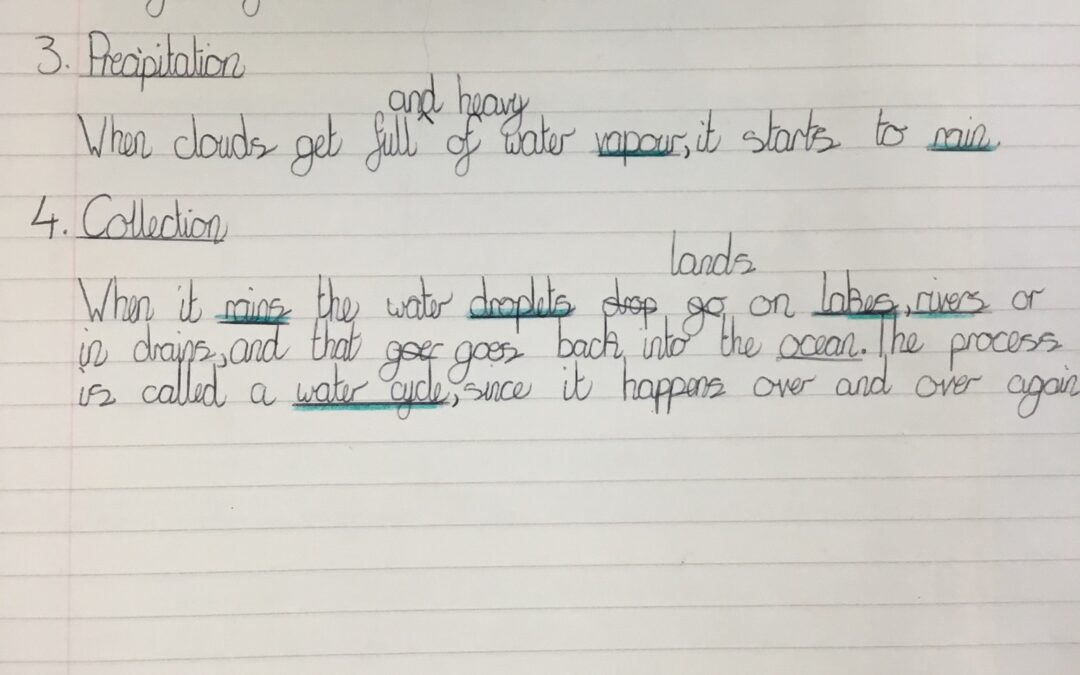 3. Precipitation
and heavy
When clouds get full of water vapour, it starts to rain.
4. Collection
lands
When it rains the water droplets drop go on lakes, rivers or
in drains, and that goes goes back into the ocean. The process
is called a water cycle, since it happens over and over again